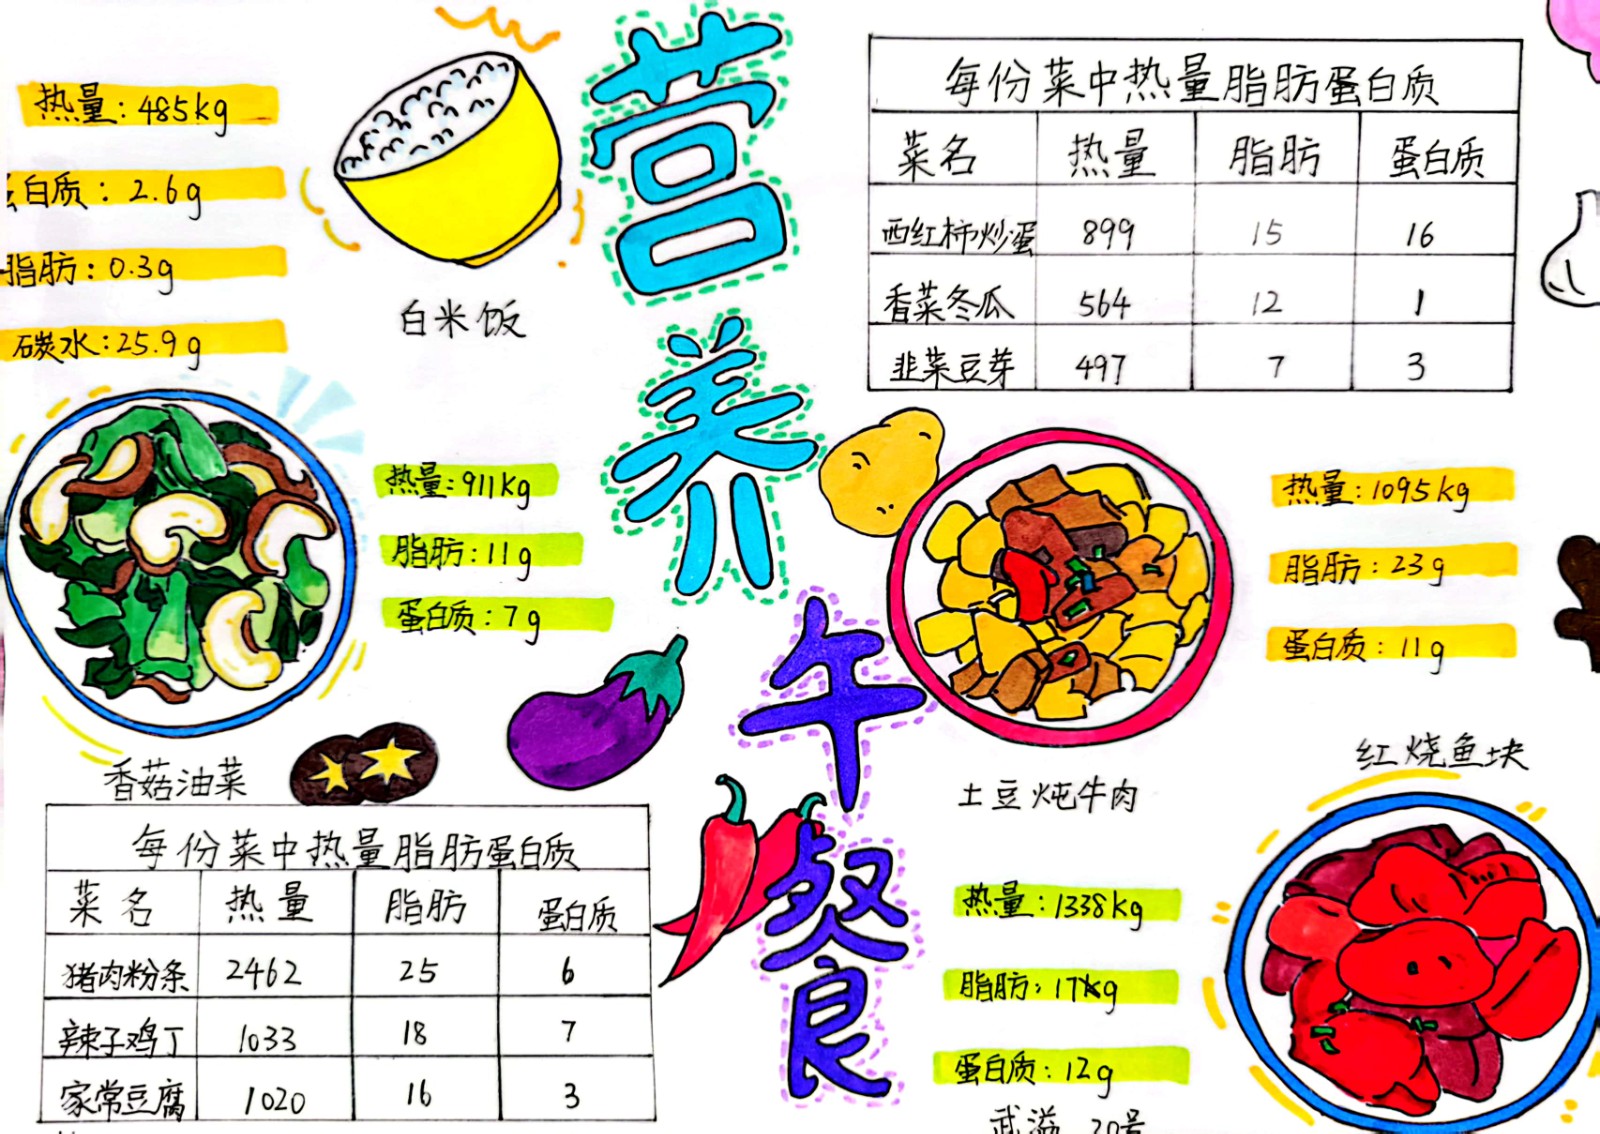 营养午餐
热量：485kg
蛋白质：2.6g
脂肪：0.3g
碳水：25.9g
白米饭
每份菜中热量脂肪蛋白质
菜名 热量 脂肪 蛋白质
西红柿炒蛋 899 15 16
香菜冬瓜 564 12 1
韭菜豆芽 497 7 3
热量：911kg
脂肪：11g
蛋白质：7g
香菇油菜
热量：1095kg
脂肪：23g
蛋白质：11g
土豆炖牛肉
红烧鱼块
热量：1338kg
脂肪：17kg
蛋白质：12g
每份菜中热量脂肪蛋白质
菜名 热量 脂肪 蛋白质
猪肉粉条 2462 25 6
辣子鸡丁 1033 18 7
家常豆腐 1020 16 3
武溢 20号